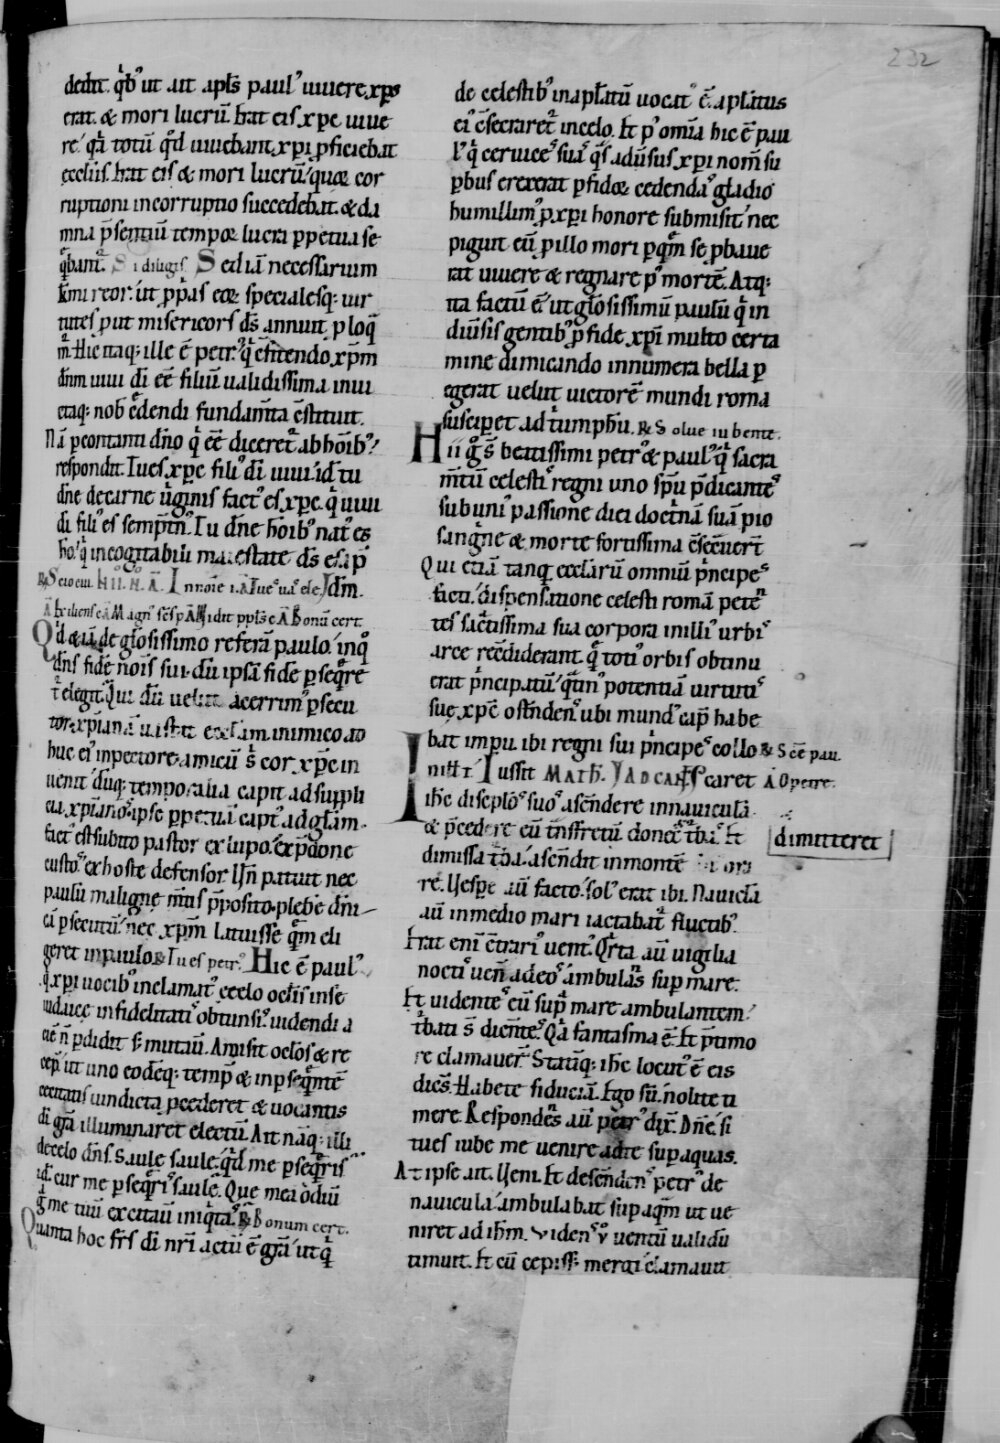 232
dedit. qͥbꝰ ut ait apl̄s paulꝰ uiuere xp̄s
erat. & mori lucrū. Erat eis xp̄c uiue
re. qͥa totū qd̄ uiuebant xp̄i ꝓficiebat
eccl̄iis. Erat eis & mori lucrū. quoꝝ cor
ruptioni incorruptio succedebat. & da
mna p̄sentiū tempoꝝ lucra ꝑpetua se
qͣbant᷑. Si diligis. Sed iā necessarium
fr̄mi reor. ut ꝓp̄as eoꝝ specialesq; uir
tutes put misericors d̄s annuit ꝓloqͣ
m᷑. Hic itaq; ille ē petrꝰ qͥ c̄fitendo xp̄m
dn̄m uiui d̄i eē filiū ualidissima inui
ctaq; nob̄ c̄dendi fundam̄ta c̄stituit.
Nā ꝑcontanti dn̄o qͥs eē diceret᷑ ab hoībꝰ.
respondit. Tu es xp̄c filiꝰ d̄i uiui. id ē tu
dn̄e de carne uͥginis factꝰ es xp̄c. qͥ uiui
d̄i filiꝰ es sempit̄nꝰ. Tu dn̄e hoībꝰ natꝰ es
hō. qͥ incogitabili maiestate d̄s es ap̄
℟ Scio cui. H II. N. A. In noīe i. A Tu eˢ uaˢ ele. Jdm̄.
A Exiliens c A Magnꝰ sc̄s p A Ꝑdidit ppl̄s c A Bonū cert.
Qd & iā de gl̄osissimo referā paulo. inqͦ
dn̄s fidē noīs sui. dū ipsā fidē ꝑseqͤre
t᷑ elegit. Qui dū uelut acerrimꝰ ꝑsecu
tor xp̄ianā uastat eccl̄am. inimico ad
huc eiꝰ in pectore. amicū s̄ cor xp̄c in
uenit. dūq; temporalia capit ad suppli
cia xp̄ianoꝝ. ipse ꝑpetuā captꝰ ad gl̄am.
factꝰ est subito pastor ex lupo. ex p̄done
custoˢ. ex hoste defensor. Usn̄ patuit nec
paulū maligne m̄tis ꝓposito. plebē dn̄i
cā ꝑsecutū. nec xp̄m latuisse qͣm eli
geret in paulo. ℟ Tu es petrꝰ. Hic ē paulꝰ
qͥ xp̄i uocibꝰ inclamatꝰ e celo. ocl̄is in se
iudaice infidelitatiˢ obtunsiˢ. uidendi a
ciē n̄ ꝑdidit s; mutauͥ. Amisit ocl̄os & re
cep̄. ut uno eodēq; temp̄r & in ꝑseqͤntē
cecitatis uindicta ꝓcederet & uocantis
d̄i gr̄a illuminaret electū. Ait nāq; illi
de celo dn̄s. Saule saule. qͥd me ꝑseqͤris
id ē cur me ꝑseqͤriˢ saule. Que mea ōdiū
ḡ me tuū excitauit iniqͥtaˢ. ℟ Bonum cert.
Quanta hoc fr̄s d̄i nr̄i actū ē gr̄a. ut qͥ
de celestibꝰ in apl̄atū uocatꝰ ē. apl̄atus
eiꝰ c̄secraret᷑ in celo. Et pꝰ omīa hic ē pau
lꝰ qͥ ceruiceˢ suaˢ qͣs aduersus xp̄i nom̄ su
ꝑbus erexerat ꝑfidoꝝ cedendaˢ gladio
humillimꝰ ꝓ xp̄i honore submisit. nec
piguit eū ꝓ illo mori ꝑ quē se ꝓbaue
rat uiuere & regnare pꝰ mortē. Atq;
ita factū ē ut gl̄osissimū paulū qͥ in
diūsis gentibꝰ ꝓ fide xp̄i multo certa
mine dimicando innumera bella ꝑ
egerat uelut uictorē mundi roma
susciperet ad triumphū. ℟ Solue iubente.
Hii gͦ f̄s beatissimi petrꝰ & paulꝰ qͥ sacra
m̄tū celestiˢ regni uno sp̄u p̄dicanteˢ
sub uniꝰ passione diei doctͥnā suā pio
sangͥne & morte fortissima c̄secͣuer̄t
Qui etiā tanqͣ eccl̄arū omniū pͥncipeˢ
facti. dispensatione celesti romā pete᷑
teˢ sacͥtissima sua corpora in illiꝰ urbiˢ
arce recͦdiderant. qͤ totiꝰ orbis obtinu
erat pͥncipatū. qͣtinꝰ potentiā uirtutiˢ
sue xp̄c ostendenˢ ubi mundꝰ cap̄ habe
bat imp̄ii. ibi regni sui pͥncipeˢ collo ℟ Sc̄e pau.
Jn illˀ tˀ. Jussit MATH. JADCARPS caret A Opetre.
ih̄c disciplōˢ suoˢ ascendere in nauiculā
& p̄cedere eū tͣns fretū donec tͥbaˢ. Et
dimitteret
dimissa tͥba. ascendit in montē ora
re. Uespe aū facto. solꝰ erat ibi. Nauicl̄a
aū in medio mari iactabat᷑ fluctibꝰ.
Erat eni c̄trariꝰ uentꝰ. Qͣrta aū uigilia
noctiˢ uen̄ ad eoˢ ambulāˢ supͣ mare.
Et uidenteˢ eū supͣ mare ambulantem.
tͥbati s̄ dic̄nteˢ. Qͥa fantasma ē. Et p̄ timo
re clamauer̄. Statimq; ih̄c locutꝰ ē eis
dicēs. Habete fiduciā. Ego sū. nolite ti
mere. Respondeˢ aū petrꝰ dix̄. Dn̄e si
tu es iube me uenire ad te sup aquas.
At ipse ait. Ueni. Et descendenˢ petrꝰ de
nauicula. ambulabat sup aqͣm ut ue
niret ad ih̄m. Uidenˢ v̊ uentū ualidū
timuit. Et cū cepiss; mergi. clamauit